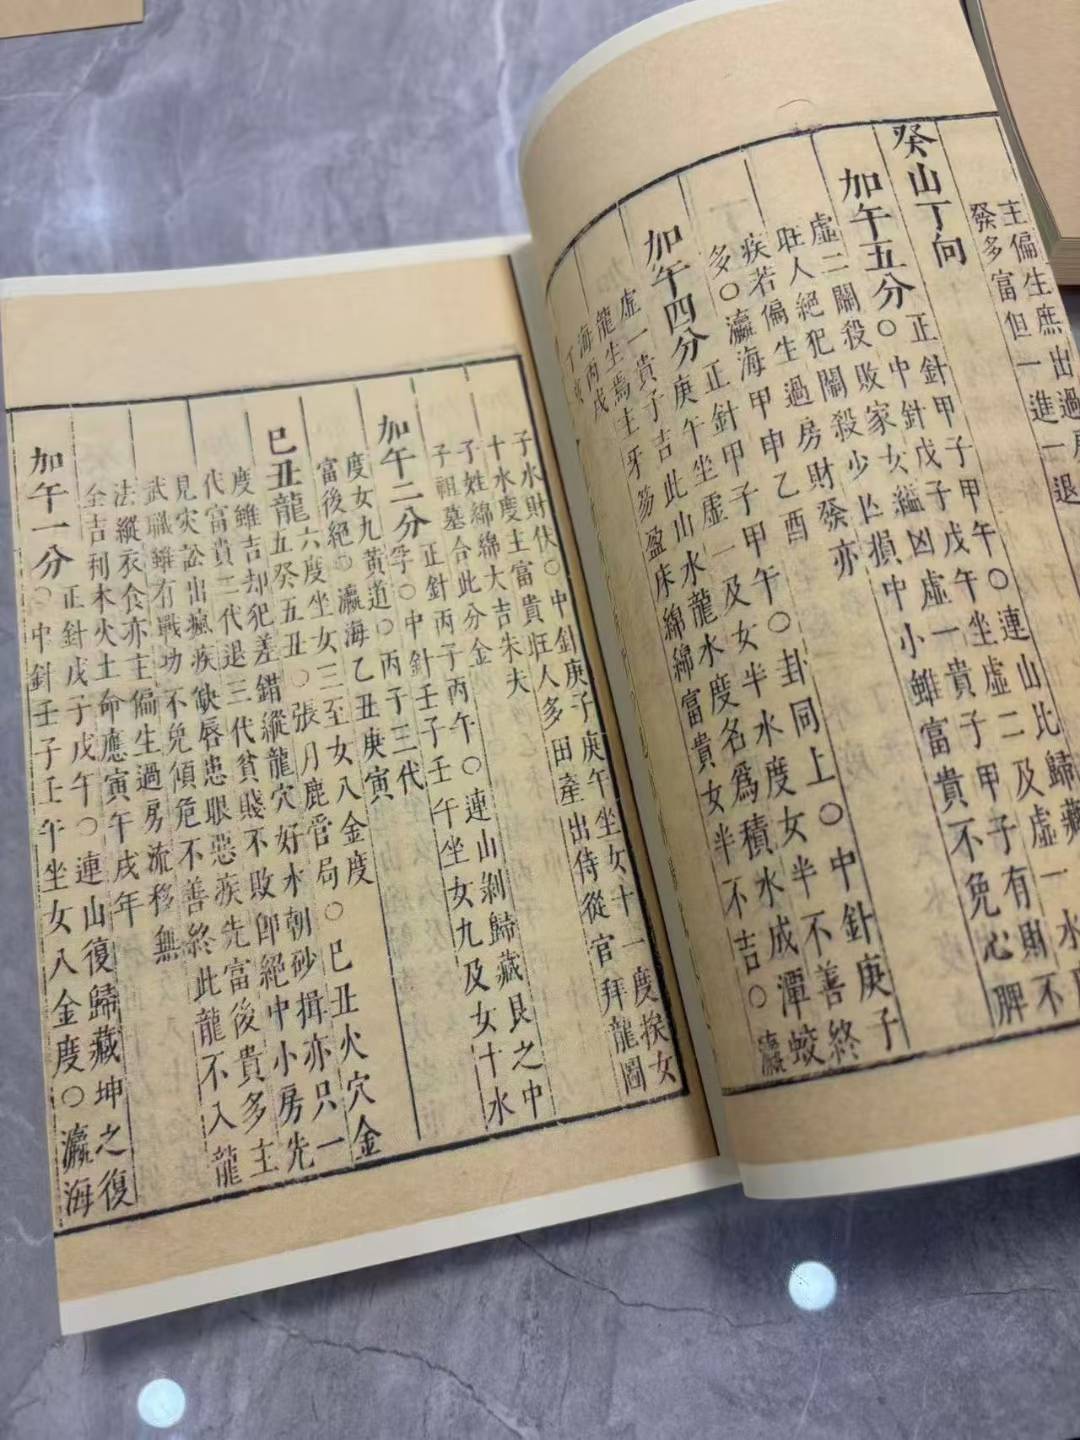 主偏生庶出過房
發多富但一進一退
癸山丁向
加午五分
正針甲子甲午○連山比歸藏
○中針戊子戊午坐虛二及虛一水度
虛二關殺敗家女縊凶虛一貴子甲子有財不
旺人絕犯關殺少亡損中小雖富貴不免心脾
疾若偏生過房財發亦
多○瀛海甲申乙酉
加午四分
正針甲子甲午○卦同上○中針庚子
庚午坐虛一及女半水度女半不善終
虛一貴子吉此山水龍水度名為積水成潭蛟
龍生焉主牙笏盈床綿綿富貴女半不吉○瀛
海丙戌
丁亥
子水財伏○中針庚子庚午坐女十一度挨女
十水度主富貴旺人多田產出侍從官拜龍圖
子姓綿綿大吉朱夫
子祖墓合此分金
加午二分
正針丙子丙午○連山剝歸藏艮之中
孚○中針壬子壬午坐女九及女十水
度女九黃道○丙子三代
富後絕○瀛海乙丑庚寅
己丑龍
五六度坐女三至女八金度
癸五丑○張月鹿管局○己丑火穴金
度雖吉却犯差錯縱龍穴好水朝砂揖亦只一
代富貴二代退三代貧賤不敗卽絕中小房先
見灾訟出瘋疾缺唇患眼惡疾先富後貴多主
武職雖有戰功不免傾危不善終此龍不入龍
法縱衣食亦主偏生過房流移無
全吉利木火土命應寅午戌年
加午一分
正針戊子戊午○連山復歸藏坤之復
○中針壬子壬午坐女八金度○瀛海